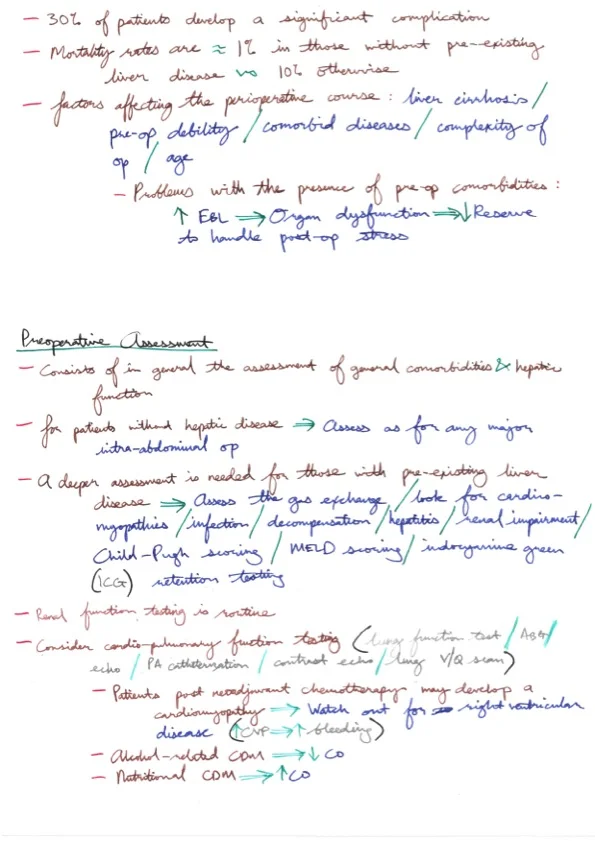 - 30% of patients develop a significant complication
- Mortality rates are ≈ 1% in those without pre-existing
liver disease vs 10% otherwise
- factors affecting the perioperative course : liver cirrhosis /
pre-op debility / comorbid diseases / complexity of
op / age
- Problems with the presence of pre-op comorbidities :
↑ EBL ⇒ Organ dysfunction ⇒ ↓ Reserve
to handle post-op stress
Preoperative Assessment
- Consists of in general the assessment of general comorbidities & hepatic
function
- for patients without hepatic disease ⇒ Assess as for any major
intra-abdominal op
- A deeper assessment is needed for those with pre-existing liver
disease ⇒ Assess the gas exchange / look for cardio-
myopathies / infection / decompensation / hepatitis / renal impairment /
Child-Pugh scoring / MELD scoring / indocyanine green
(ICG) retention testing
- Renal function testing is routine
- Consider cardio-pulmonary function testing (lung function test / ABG /
echo / PA catheterization / contrast echo / lung V/Q scan)
- Patients post neoadjuvant chemotherapy may develop a
cardiomyopathy ⇒ Watch out for right ventricular
disease (↑CVP ⇒ ↑ bleeding)
- Alcohol-related CDM ⇒ ↓ CO
- Nutritional CDM ⇒ ↑ CO